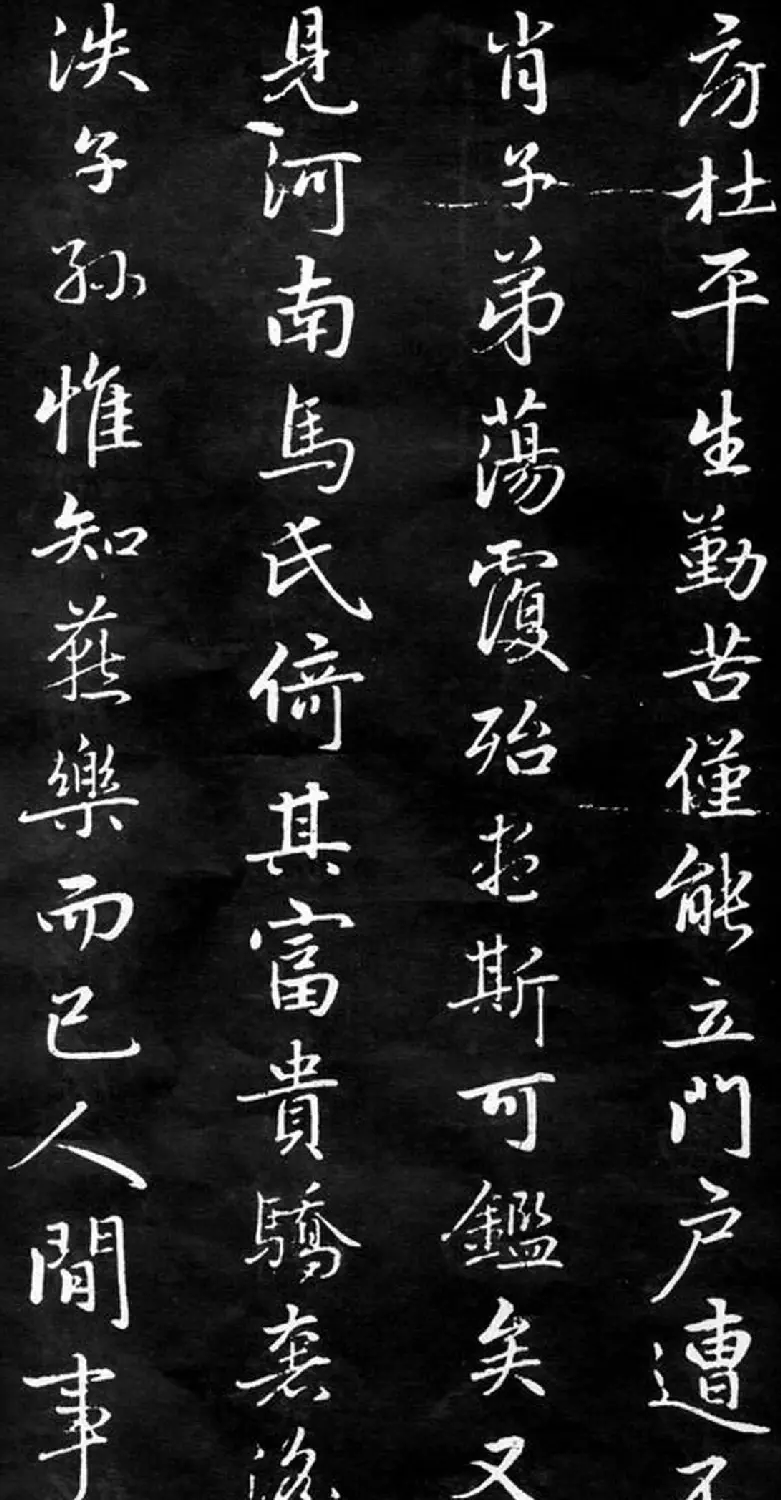 房杜平生勤苦僅能立門户遭不
肖子弟蕩覆殆盡斯可鑑矣又
見河南馬氏倚其富貴驕奢淫
泆子孫惟知燕樂而已人間事